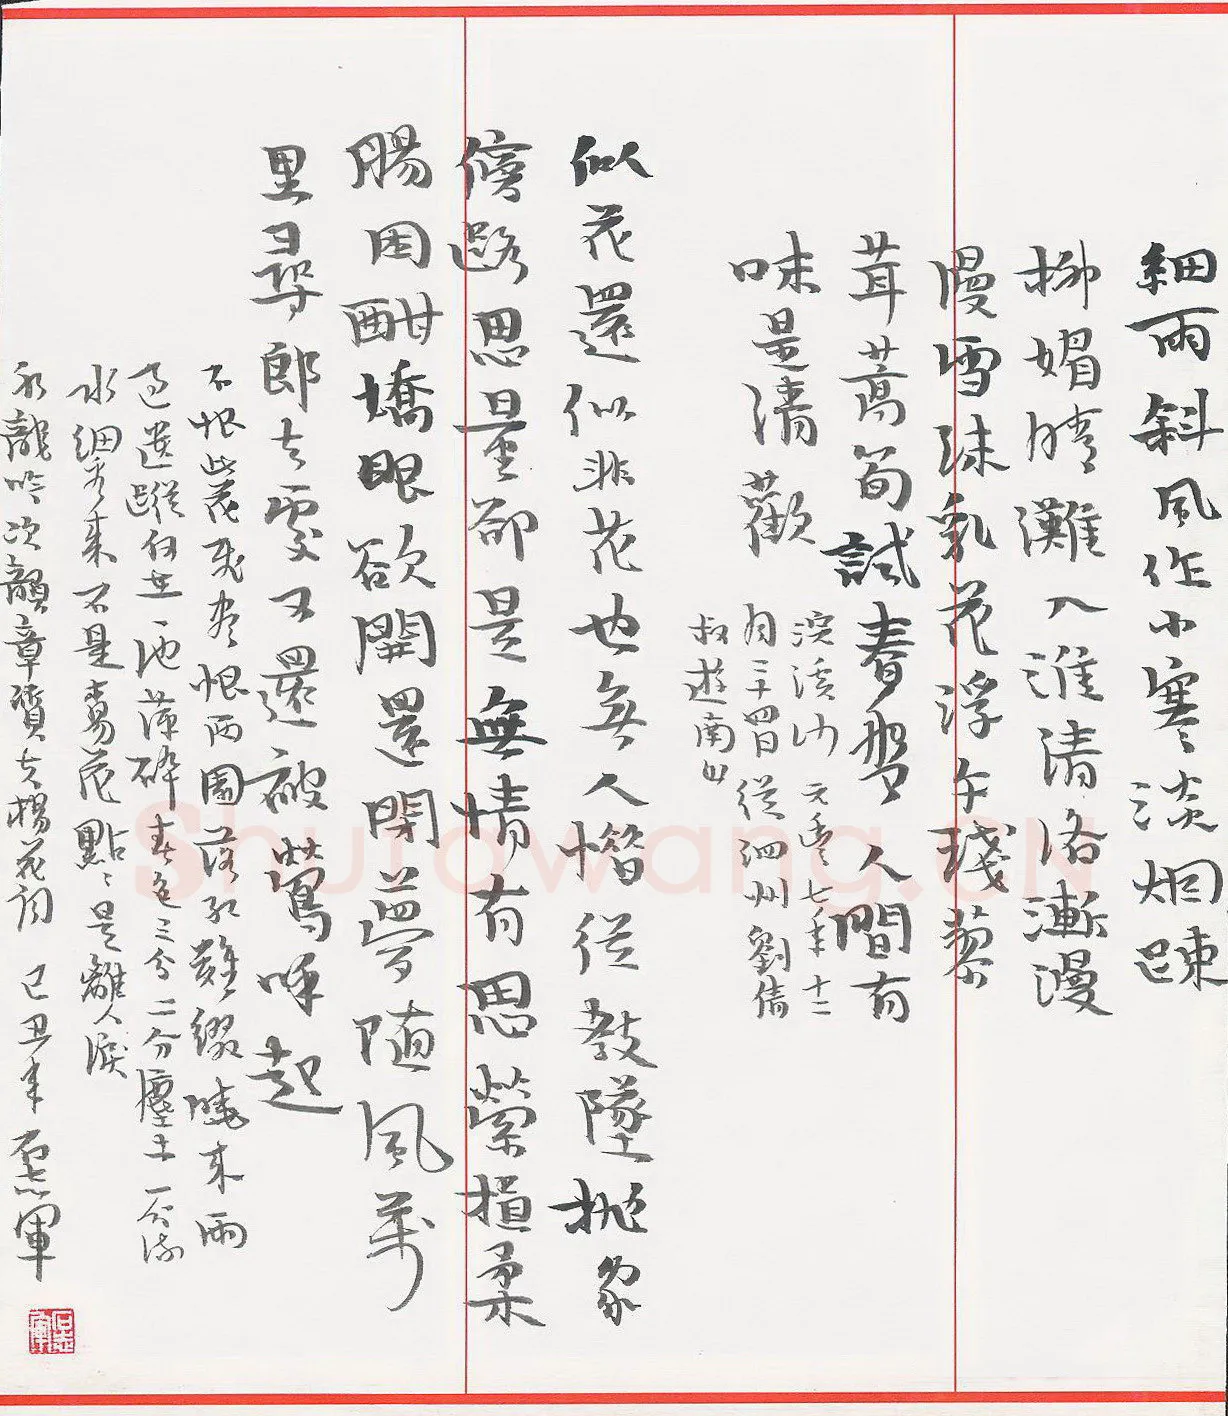 細雨斜風作小寒淡烟踈
柳媚晴灘入淮清洛漸漫
漫雪沫乳花浮午琖蓼
茸蒿筍試春盤人間有
味是清歡
浣溪沙 元豐七年十二
月二十四日從泗州劉倩
叔遊南山
似花還似非花也無人惜從教墜拋家
傍路思量卻是無情有思縈損柔
腸困酣嬌眼欲開還閉夢隨風萬
里尋郎去處又還被鶯呼起
不恨此花飛盡恨西園落紅難綴曉來雨
過遺蹤何在一池萍碎春色三分二分塵土一分流
水細看來不是楊花點〻是離人淚
水龍吟次韻章質夫楊花詞 己丑年 石志軍
石志軍
Shufawang.CN